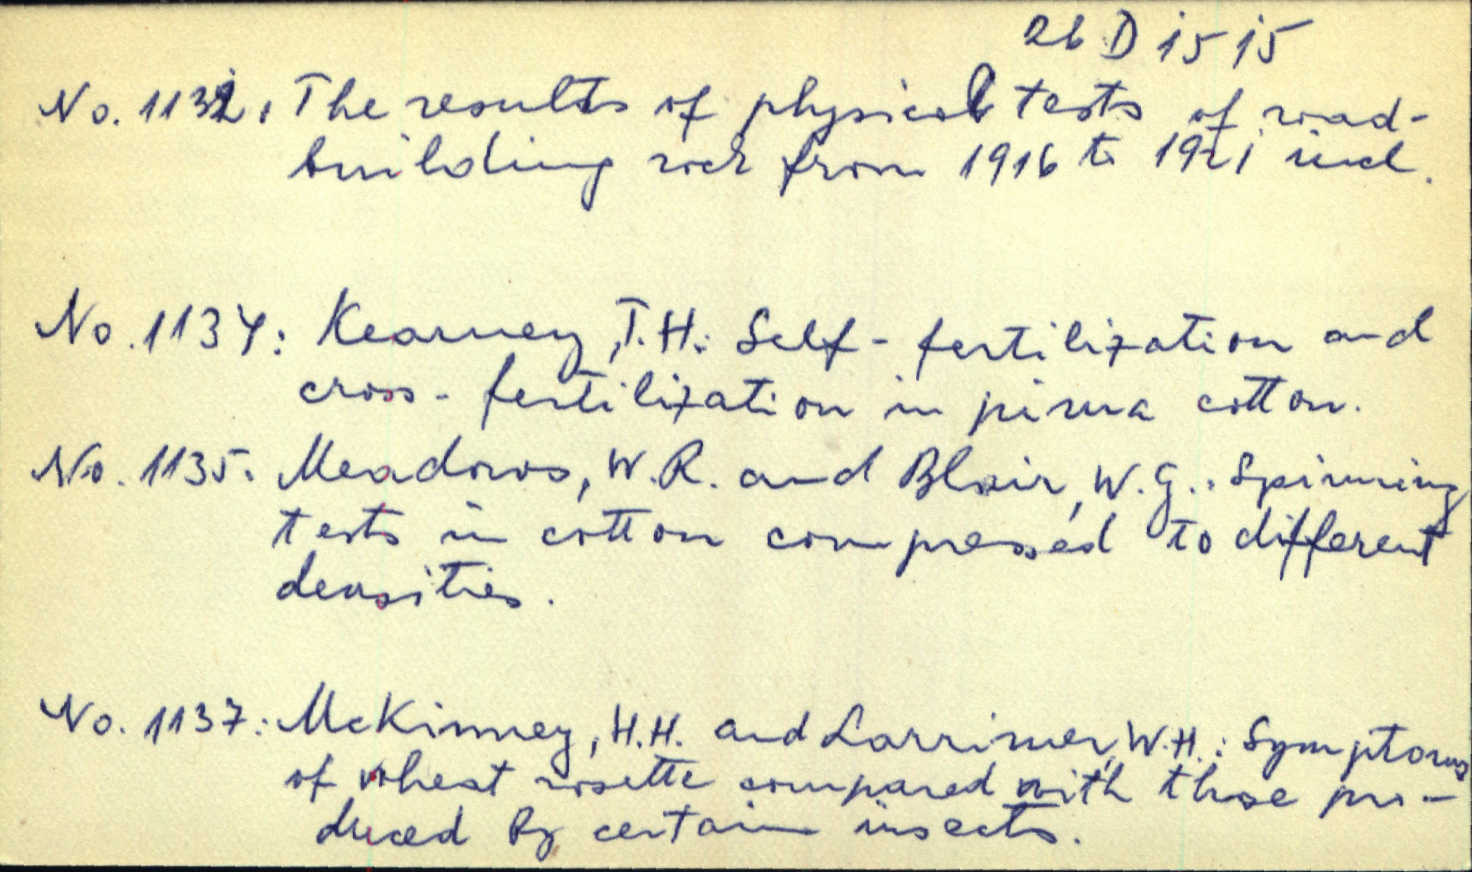 26 D 15 15
No. 1132: The results of physical tests of road-
building rock from 1916 to 1921 incl.
No. 1134: Kearney, T.H.: Self-fertilization and
cross-fertilization in pima cotton.
No. 1135: Meadows, W.R. and Blair, W.G.: Spinning
tests in cotton compressed to different
densities.
No. 1137: McKinney, H.H. and Larrimer, W.H.: Symptoms
of wheat rosette compared with those pro-
duced by certain insects.